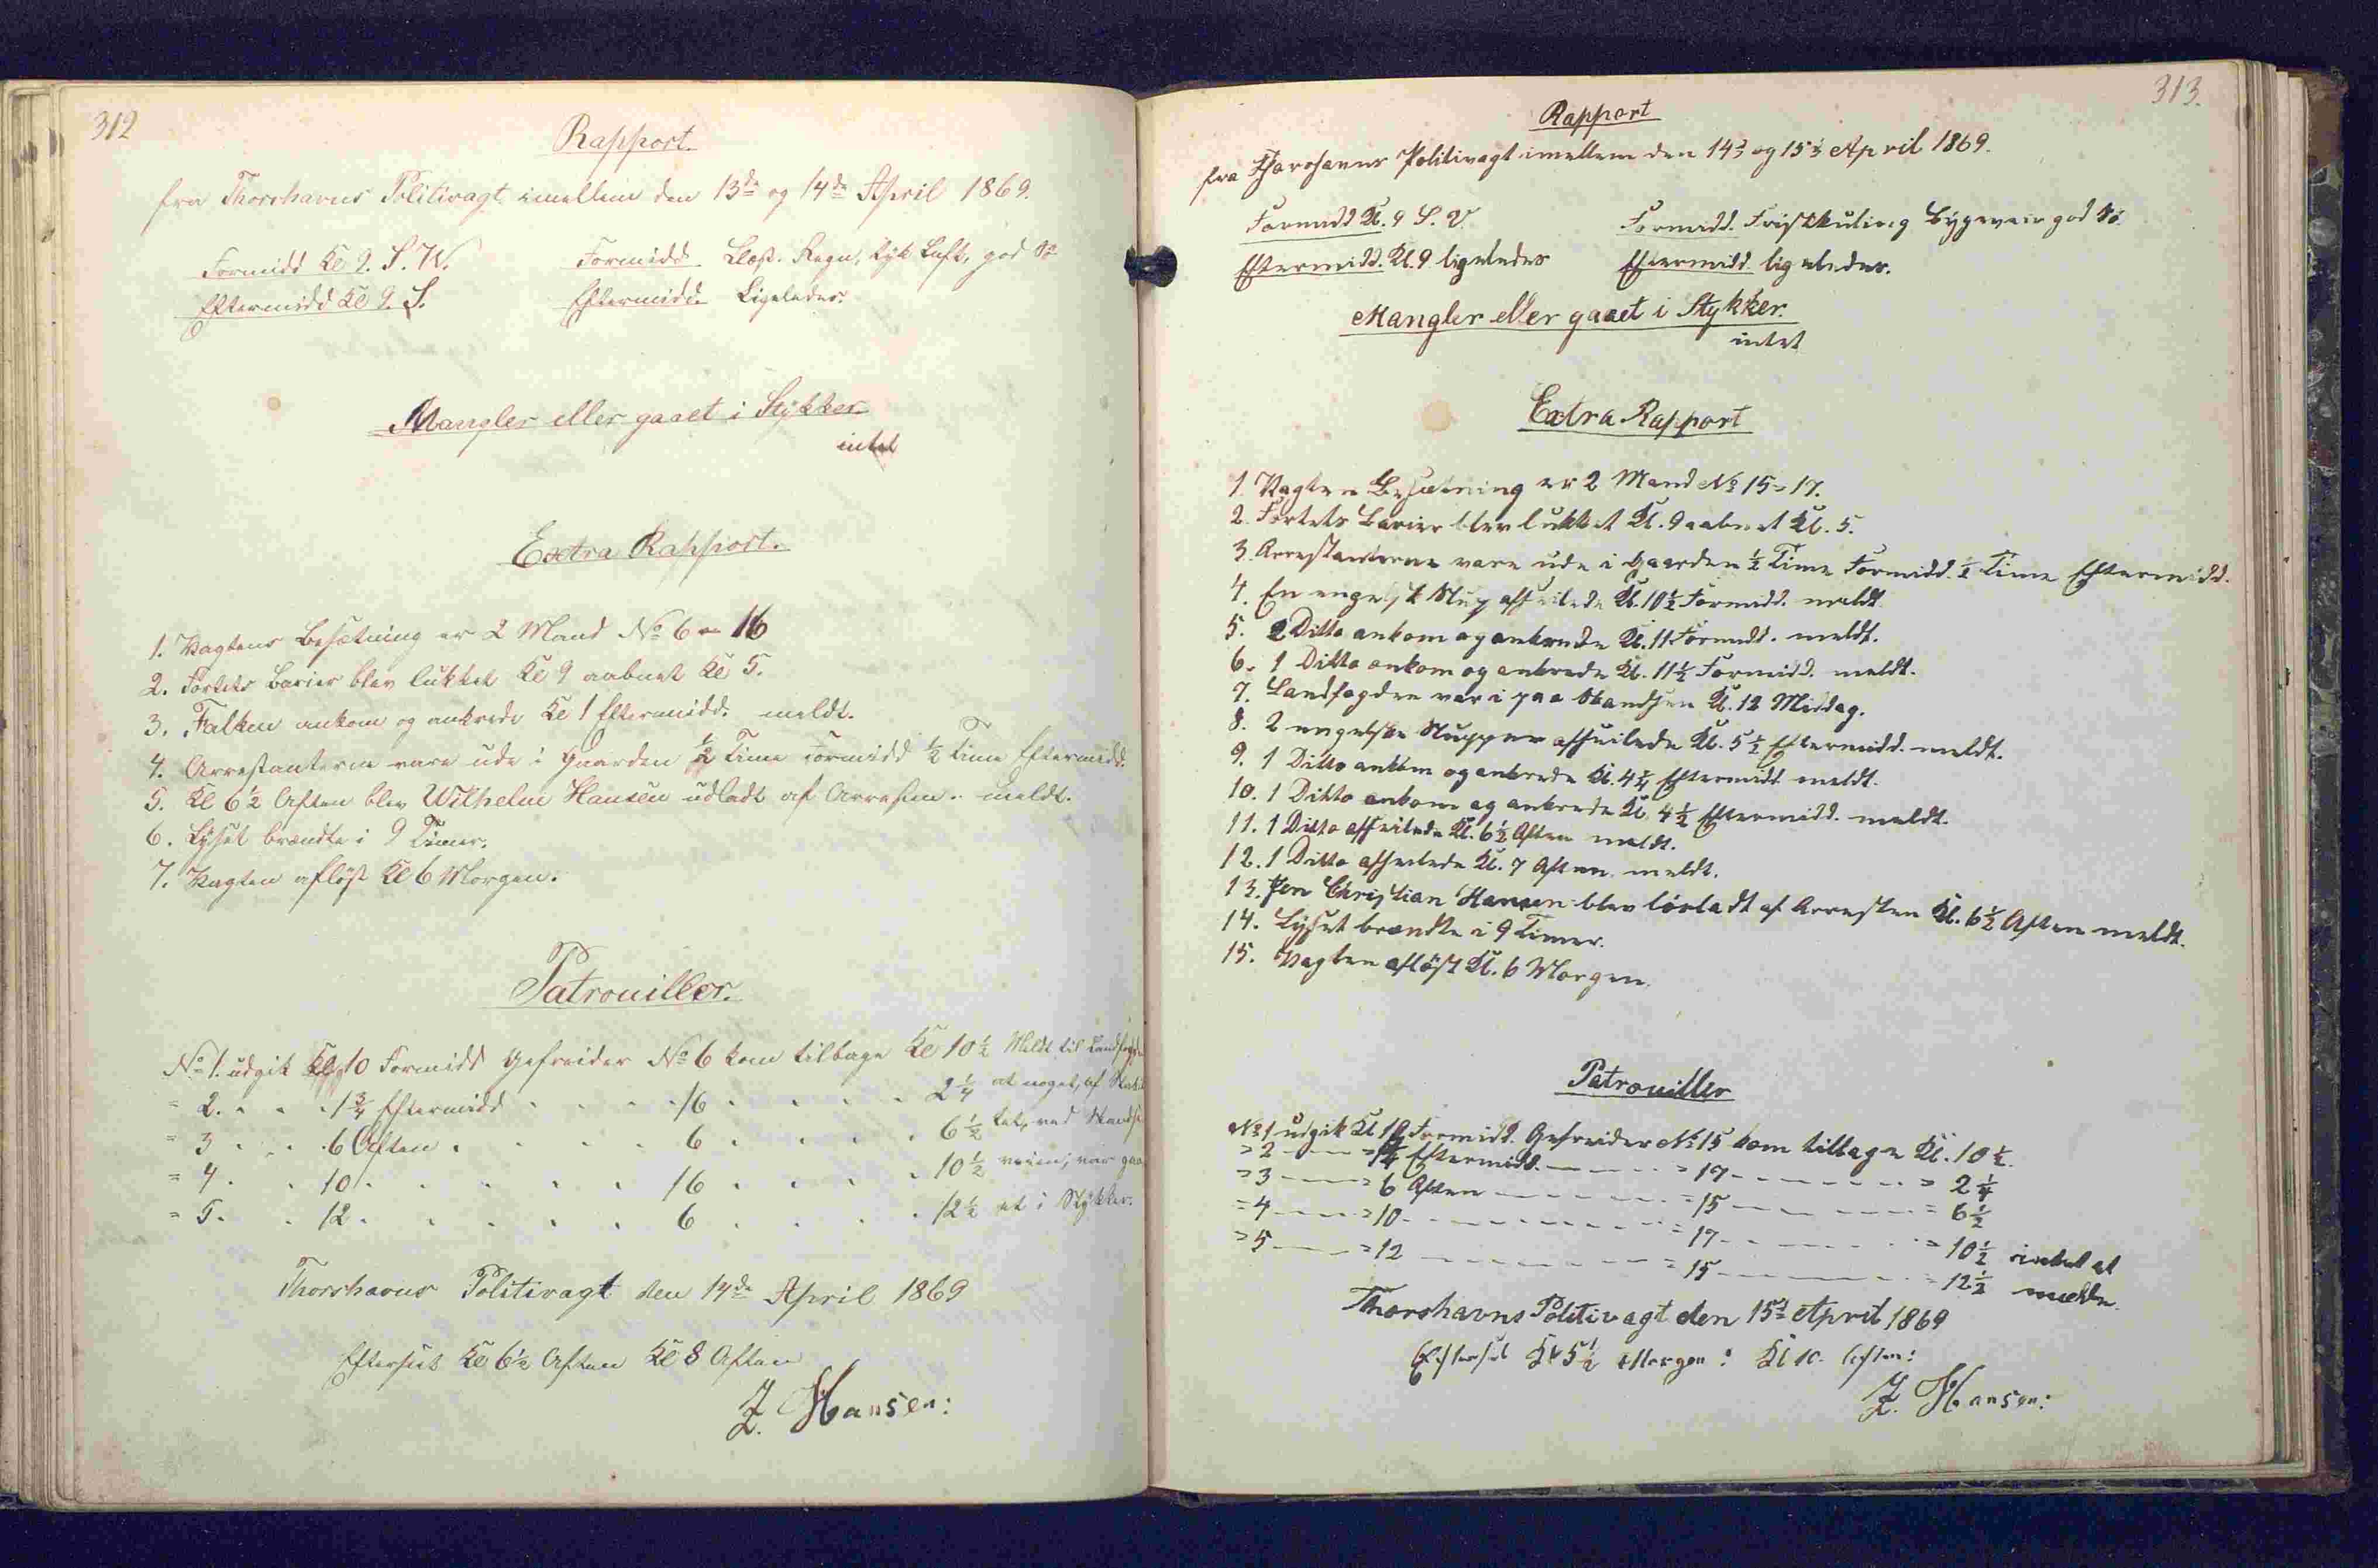 312
Rapport.
fra Thorshavns Politivagt imellem den 13de og 14de April 1869.
Formidd Kl 9. S.W. Formidd. Blæst. Regn, tyk Luft, god Sø
Eftermidd Kl 9. S. Eftermidd. Ligeledes.
Mangler eller gaaet i Stykker.
intet
Extra Rapport.
1. Vagtens Besætning er 2 Mand No 6 = 16
2. Fortets Barier blev lukket Kl 9 aabnet Kl 5.
3. Falken ankom og ankrede Kl 1 Eftermidd. meldt.
4. Arrestanterne vare ude i Gaarden ½ Time Formidd ½ Time Eftermidd.
5. Kl 6½ Aften blev Wilhelm Hansen udladt af Arresten. meldt.
6. Lyset brændte i 9 Timer.
7. Vagten afløst Kl 6 Morgen.
Patrouiller.
No 1. udgik Kl 10 Formidd Gefreider No 6 kom tilbage Kl 10½ Meldt til Landfogden
= 2. 1¾ Eftermidd 16 2¼ at noget, af
= 3 6 Aften 6 6½ tet, ved
= 4. 10 16 10½ veien, var gaa
= 5. 12 6 12½ et i Stykker.
Thorshavns Politivagt den 14de April 1869
Efterseet Kl 6½ Aften Kl 8 Aften
Z. Hansen:
313.
Rapport
fra Thorshavns Politivagt imellem den 14de og 15de April 1869.
Formidd Kl. 9 S.V. Formidd. Frisk kuling Bygeveir god Sø.
Eftermidd. Kl. 9 ligeledes Eftermidd ligeledes.
Mangler eller gaaet i Stykker.
intet
Extra Rapport
1. Vagtens Besætning er 2 Mand No 15 = 17.
2. Fortets Barier blev lukket Kl. 9 aabnet Kl. 5.
3. Arrestanterne vare ude i Gaarden ½ Time Formidd. ½ Time Eftermidd.
4. En engelsk Slup afseilede Kl. 10½ Formidd. meldt.
5. 2 Ditto ankom og ankrede Kl. 11 Formidd. meldt.
6. 1 Ditto ankom og ankrede Kl. 11½ Formidd. meldt.
7. Landfogden var i paa Skandsen Kl. 12 Middag.
8. 2 engelske Slupper afseilede Kl. 5½ Eftermidd. meldt.
9. 1 Ditto ankom og ankrede Kl. 4¼ Eftermidd. meldt.
10. 1 Ditto ankom og ankrede Kl. 4½ Eftermidd. meldt.
11. 1 Ditto afseilede Kl. 6½ Aften meldt.
12. 1 Ditto afseilede Kl. 7 Aften. meldt.
13. Jen Christian Hansen blev løsladt af Arresten Kl. 6½ Aften meldt.
14. Lyset brændte i 9 Timer.
15. Vagten afløst Kl. 6 Morgen.
Patrouiller
No 1 udgik Kl 10 Formidd. Gefreider No 15 kom tilbage Kl. 10½.
= 2 = Eftermidd. = 17 = 2¼
= 3 = 6 Aften = 15 = 6½
= 4 = 10 = 17 = 10½ intet at
= 5 = 12 = 15 = 12½ melde.
Thorshavns Politivagt den 15de April 1869
Efterset Kl 5½ Morgen: Kl 10. Aften:
Z. Hansen: